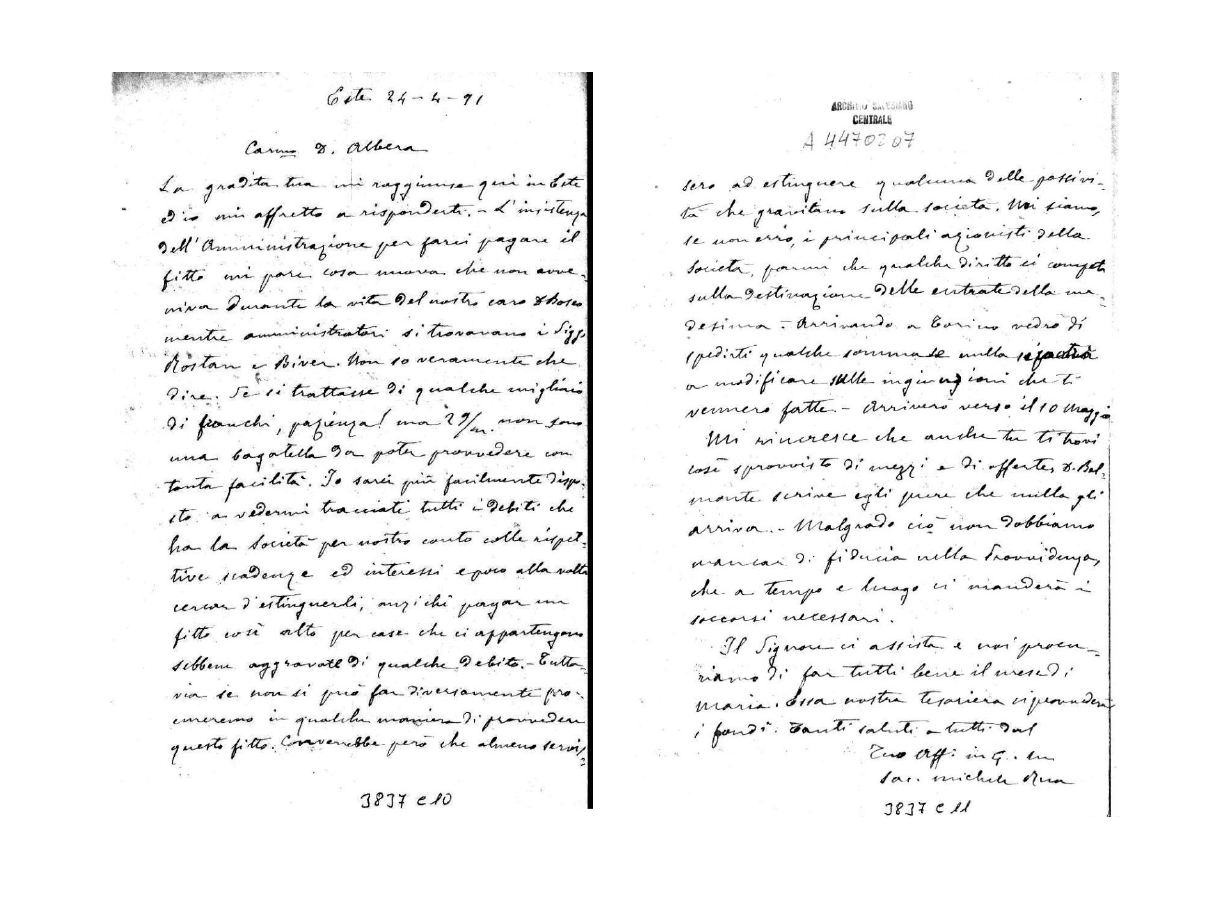 Este 24-4-91
Carmo D. Albera
La gradita tua mi raggiunse qui in Este
ed io mi affretto a risponderti. - L'insistenza
dell'Amministrazione per farci pagare il
fitto mi pare cosa nuova che non avve-
niva durante la vita del nostro caro D Bosco
mentre amministratori si trovavano i Sigg.
Rostan e Biver. Non so veramente che
dire. Se si trattasse di qualche migliaio
di franchi, pazienza! ma 29/m. non sono
una bagatella da poter provvedere con
tanta facilità. Io sarei più facilmente dispo-
sto a vedermi tracciati tutti i debiti che
ha la Società per nostro conto colle rispet-
tive scadenze ed interessi e poco alla volta
cercar d'estinguerli, anzichè pagar un
fitto così alto per case che ci appartengono
sebbene aggravate di qualche debito. - Tutta-
via se non si può far diversamente pro-
cureremo in qualche maniera di provvedere
questo fitto. Converrebbe però che almeno servis-
3837 C 10
ARCHIVIO SALESIANO
CENTRALE
A 4470207
sero ad estinguere qualcuna delle passivi-
tà che gravitano sulla società. Noi siamo,
se non erro, i principali azionisti della
Società, parmi che qualche diritto ci competa
sulla destinazione delle entrate della me-
desima. - Arrivando a Torino vedrò di
spedirti qualche somma se nulla
a modificare sulle ingiunzioni che ti
vennero fatte. - Arriverò verso il 10 Maggio
Mi rincresce che anche tu ti trovi
così sprovvisto di mezzi e di offerte, D. Bel-
monte scrive egli pure che nulla gli
arriva. - Malgrado ciò non dobbiamo
mancar di fiducia nella Provvidenza,
che a tempo e luogo ci manderà i
soccorsi necessari.
Il Signore ci assista e noi procu-
riamo di far tutti bene il mese di
Maria. Essa nostra tesoriera ci provvederà
i fondi. Tanti saluti a tutti dal
Tuo Aff. in G. M
Sac. Michele Rua
3837 C 11